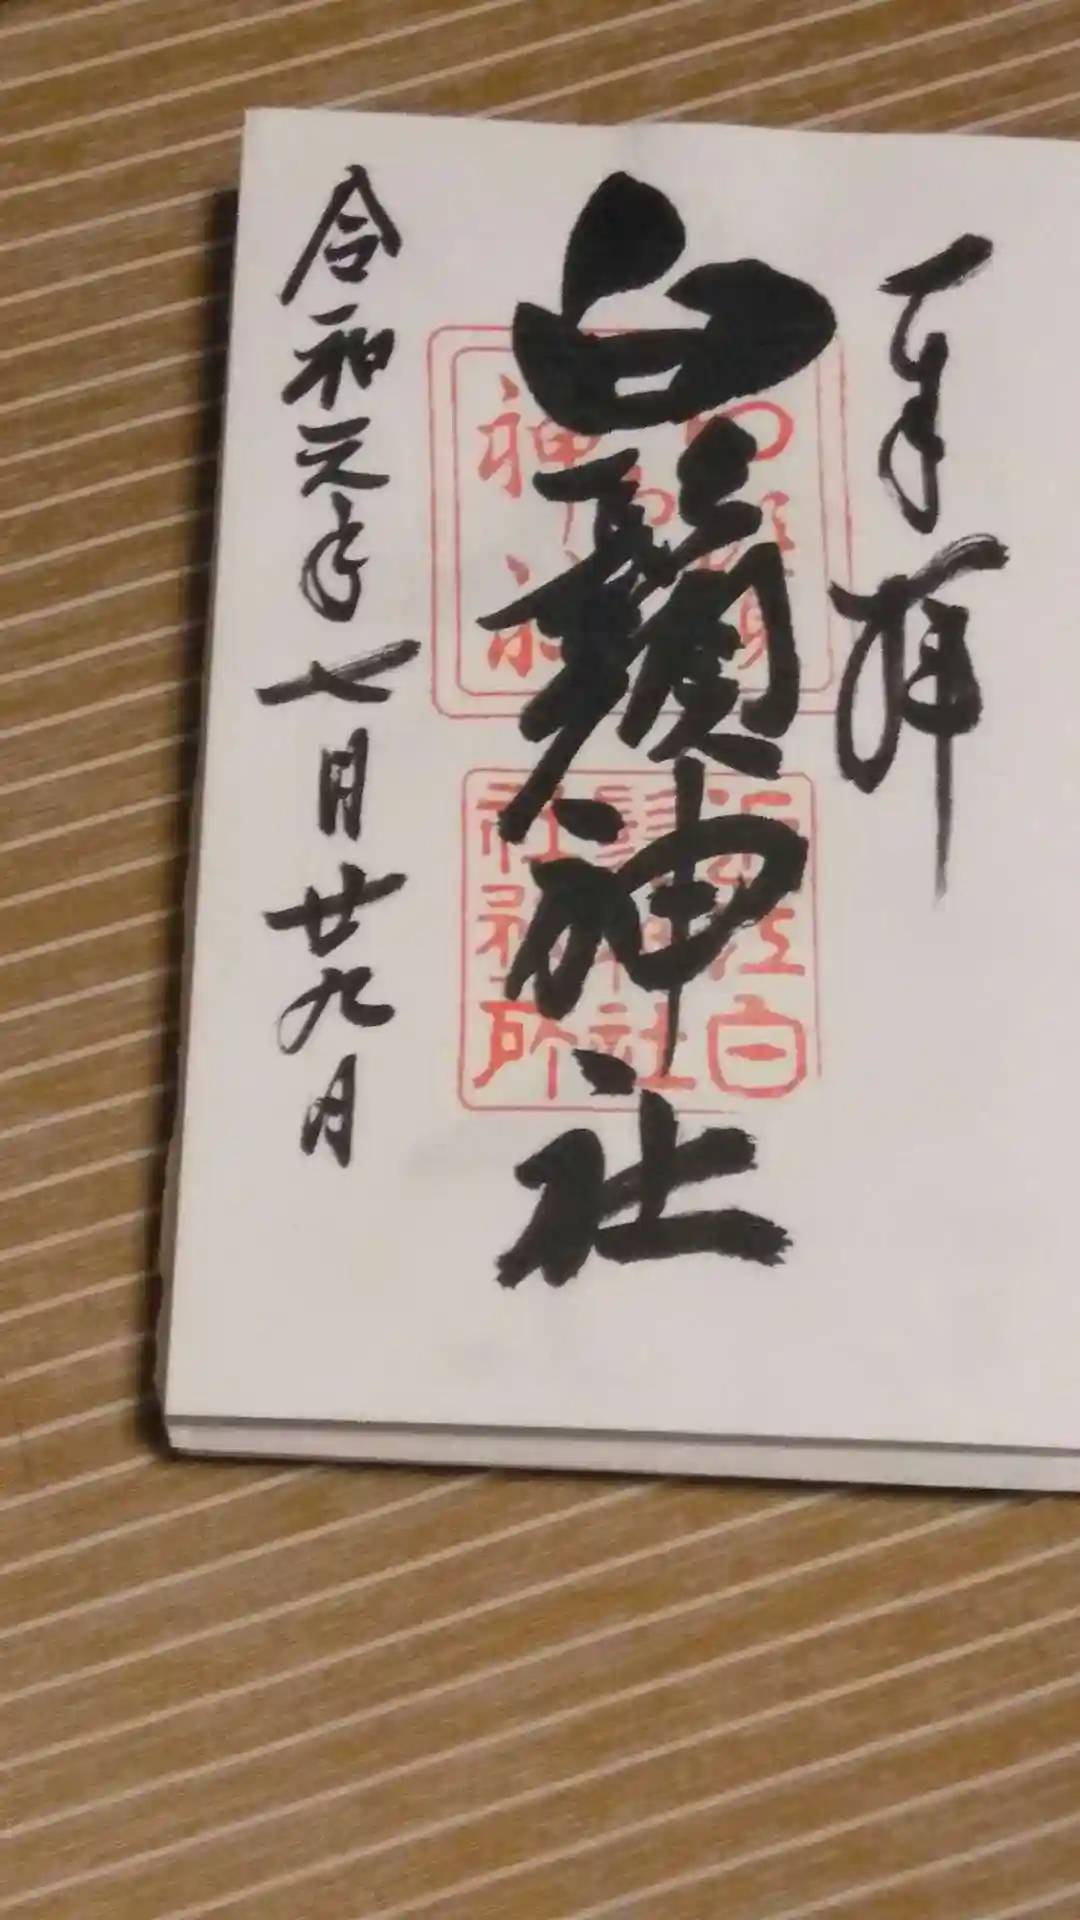 奉拝
白鬚神社
近江白
鬚神社
社務所
令和元年七月廿九日